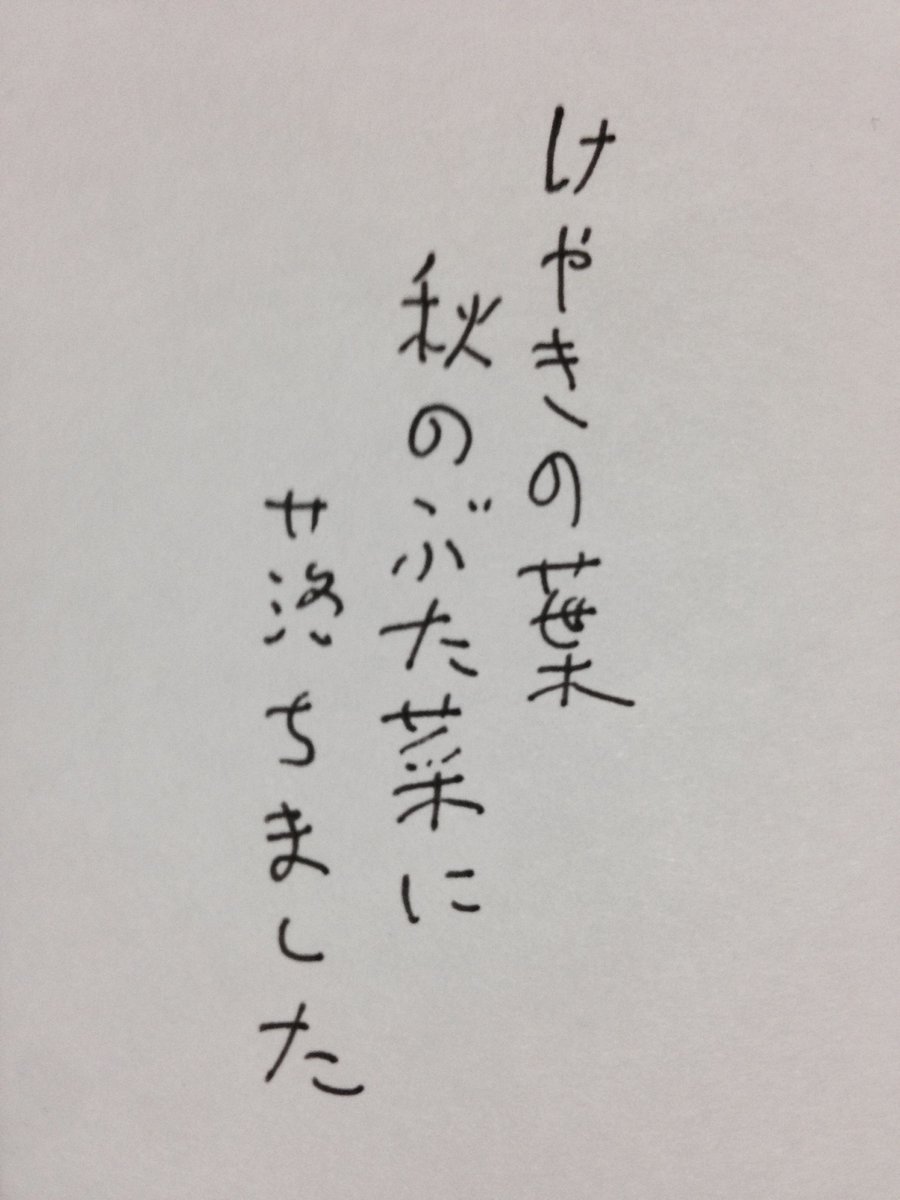 けやきの葉
秋のぶた菜に
落ちました